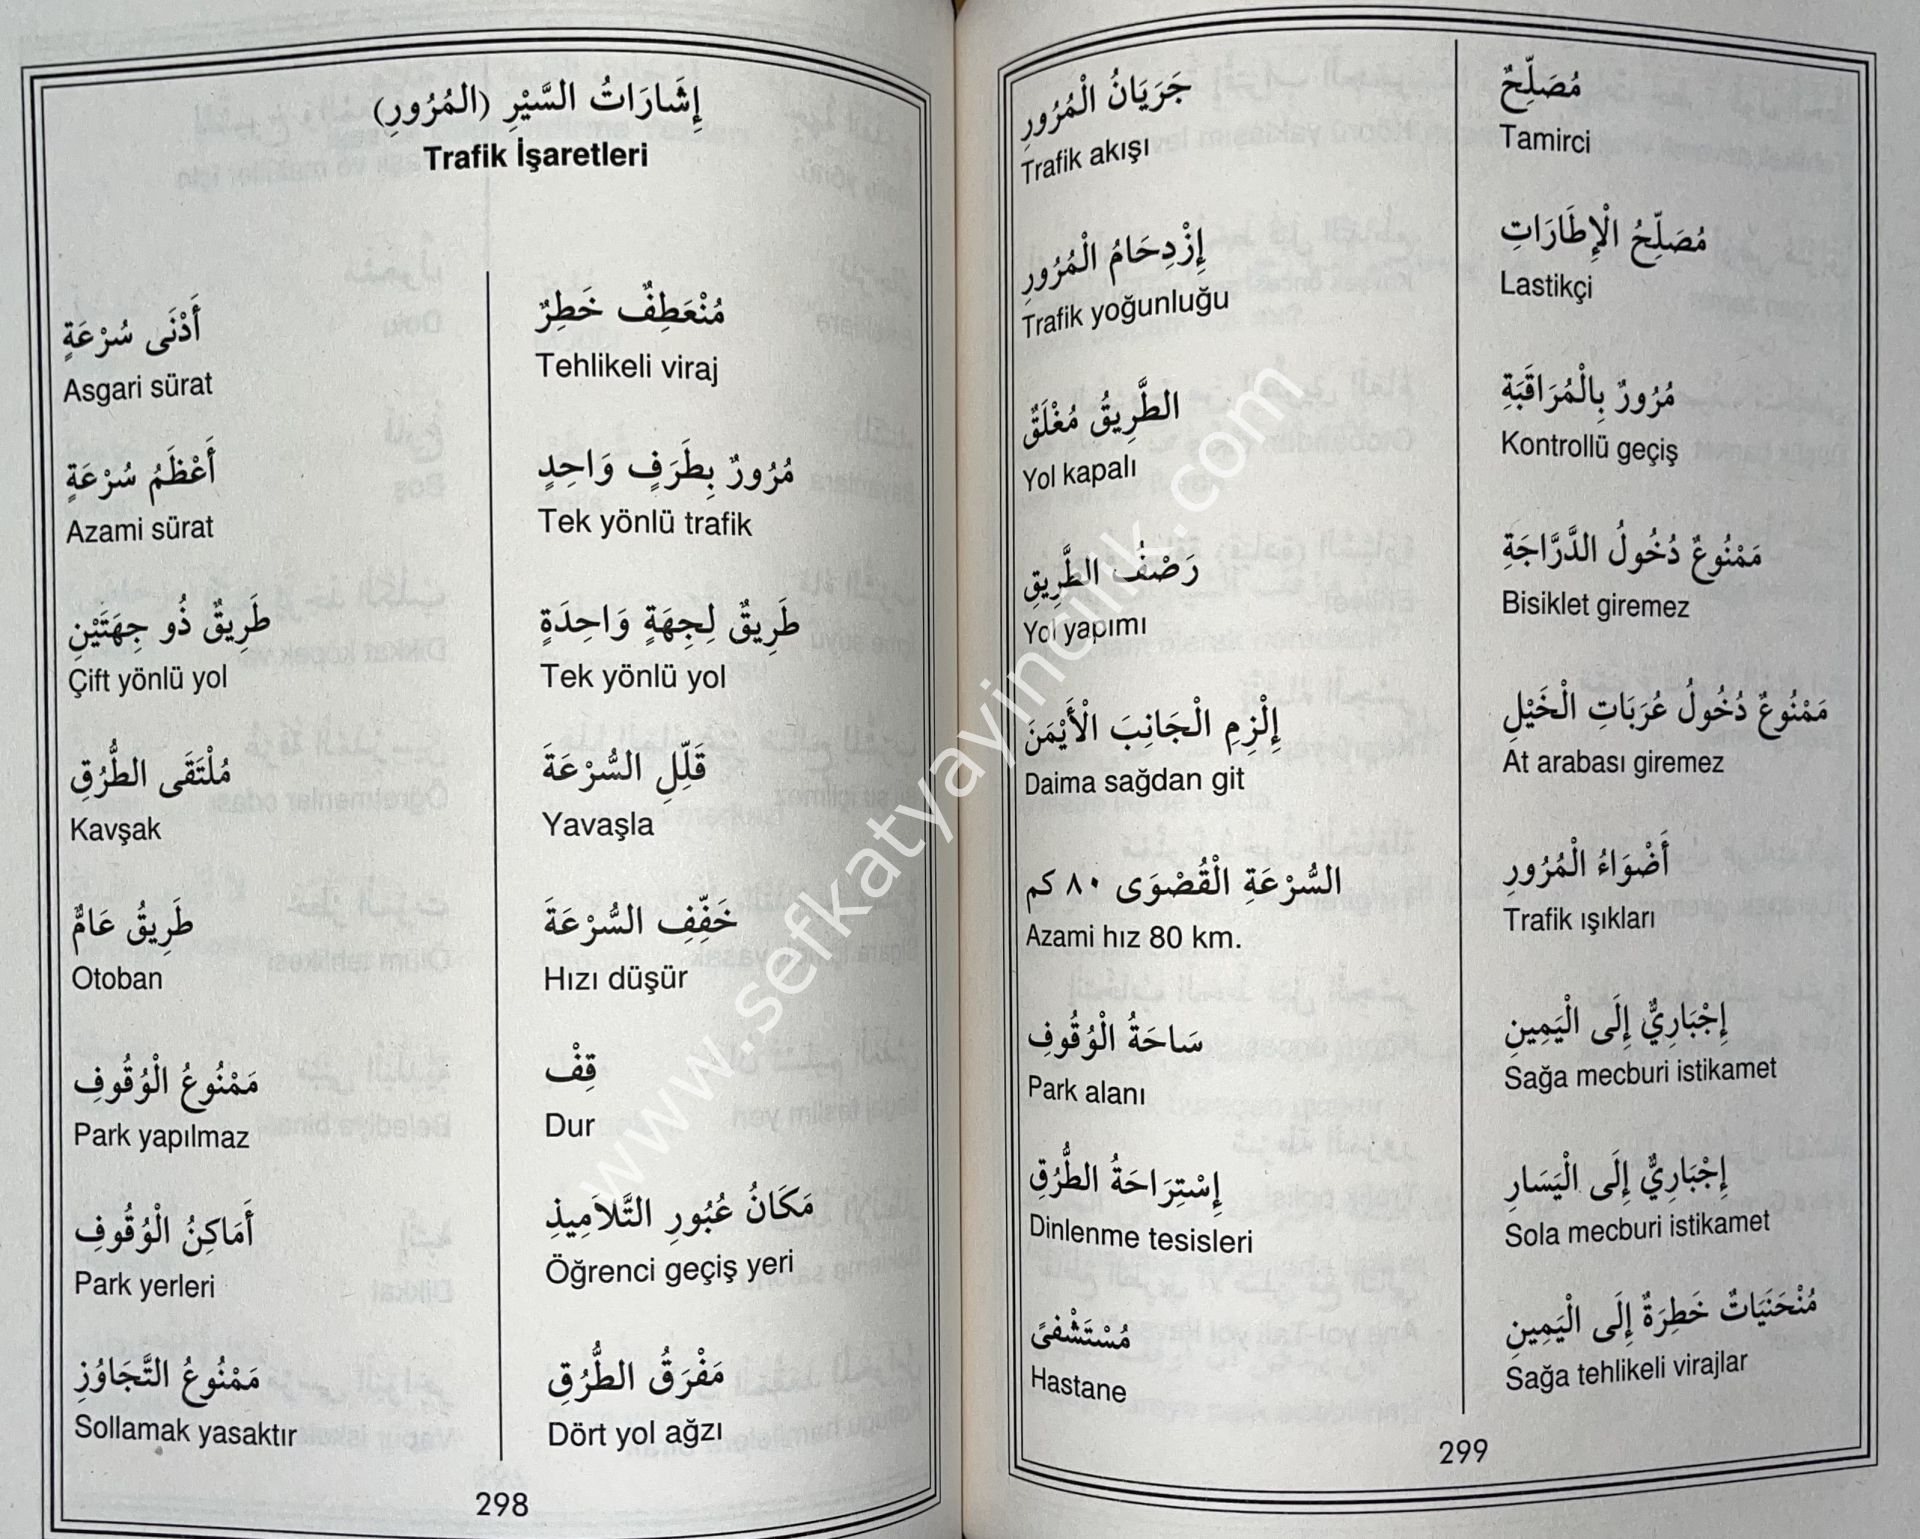 إِشَارَاتُ السَّيْرِ (المُرُورِ)
Trafik İşaretleri
أَدْنَى سُرْعَةٍ
Asgari sürat
أَعْظَمُ سُرْعَةٍ
Azami sürat
طَرِيقٌ ذُو جِهَتَيْنِ
Çift yönlü yol
مُلْتَقَى الطُّرُقِ
Kavşak
طَرِيقُ عَامٌّ
Otoban
مَمْنُوعُ الْوُقُوفِ
Park yapılmaz
أَمَاكِنُ الْوُقُوفِ
Park yerleri
مَمْنُوعُ التَّجَاوُزِ
Sollamak yasaktır
مُنْعَطِفٌ خَطِرٌ
Tehlikeli viraj
مُرُورٌ بِطَرَفٍ وَاحِدٍ
Tek yönlü trafik
طَرِيقٌ لِجِهَةٍ وَاحِدَةٍ
Tek yönlü yol
قَلِّلِ السُّرْعَةَ
Yavaşla
خَفِّفِ السُّرْعَةَ
Hızı düşür
قِفْ
Dur
مَكَانُ عُبُورِ التَّلَامِيذِ
Öğrenci geçiş yeri
مَفْرَقُ الطُّرُقِ
Dört yol ağzı
298
جَرَيَانُ الْمُرُورِ
Trafik akışı
إِزْدِحَامُ الْمُرُورِ
Trafik yoğunluğu
الطَّرِيقُ مُغْلَقٌ
Yol kapalı
رَصْفُ الطَّرِيقِ
Yol yapımı
إِلْزِمِ الْجَانِبَ الْأَيْمَنَ
Daima sağdan git
السُّرْعَةِ الْقُصْوَى ٨٠ كم
Azami hız 80 km.
سَاحَةُ الْوُقُوفِ
Park alanı
إِسْتِرَاحَةُ الطُّرُقِ
Dinlenme tesisleri
مُسْتَشْفىً
Hastane
مُصَلِّحٌ
Tamirci
مُصَلِّحُ الْإِطَارَاتِ
Lastikçi
مُرُورٌ بِالْمُرَاقَبَةِ
Kontrollü geçiş
مَمْنُوعٌ دُخُولُ الدَّرَّاجَةِ
Bisiklet giremez
مَمْنُوعٌ دُخُولُ عُرَبَاتِ الْخَيْلِ
At arabası giremez
أَضْوَاءُ الْمُرُورِ
Trafik ışıkları
إِجْبَارِيٌّ إِلَى الْيَمِينِ
Sağa mecburi istikamet
إِجْبَارِيٌّ إِلَى الْيَسَارِ
Sola mecburi istikamet
مُنْحَنَيَاتٌ خَطِرَةٌ إِلَى الْيَمِينِ
Sağa tehlikeli virajlar
299
www.sefkatyayincilik.com